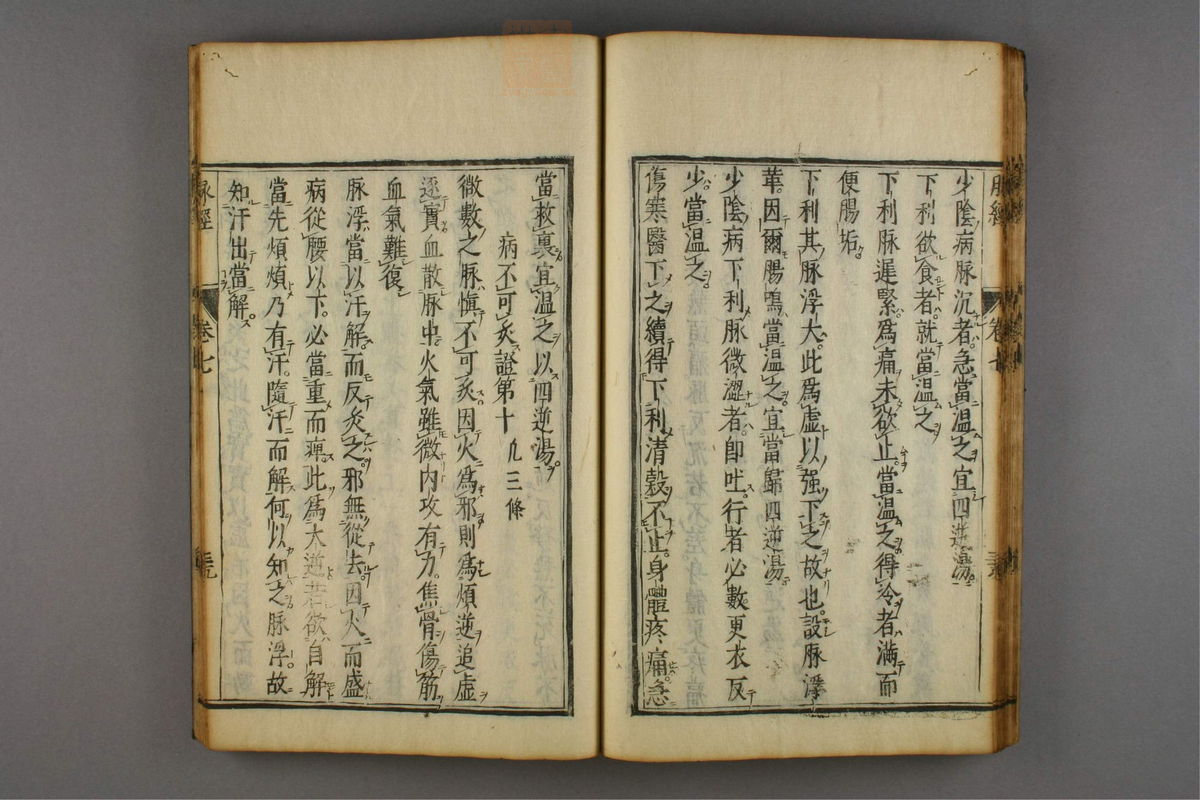 脉經 卷七
少陰病脉沉者急當温之宜四逆湯
下利欲食者就當温之
下利脉遲緊爲痛未欲止當温之得冷者滿而
便腸垢
下利其脉浮大此爲虛以强下之故也設脉浮
革因爾腸鳴當温之宜當歸四逆湯
少陰病下利脉微澀者即吐行者必數更衣反
少當温之
傷寒醫下之續得下利清穀不止身體疼痛急
當救裏宜温之以四逆湯
病不可灸證第十九三條
微數之脉愼不可灸因火爲邪則爲煩逆追虛
逐實血散脉中火氣雖微内攻有力焦骨傷筋
血氣難復
脉浮當以汗解而反灸之邪無從去因火而盛
病從腰以下必當重而痺此爲大逆若欲自解
當先煩煩乃有汗隨汗而解何以知之脉浮故
知汗出當解
脉經 卷七 三九